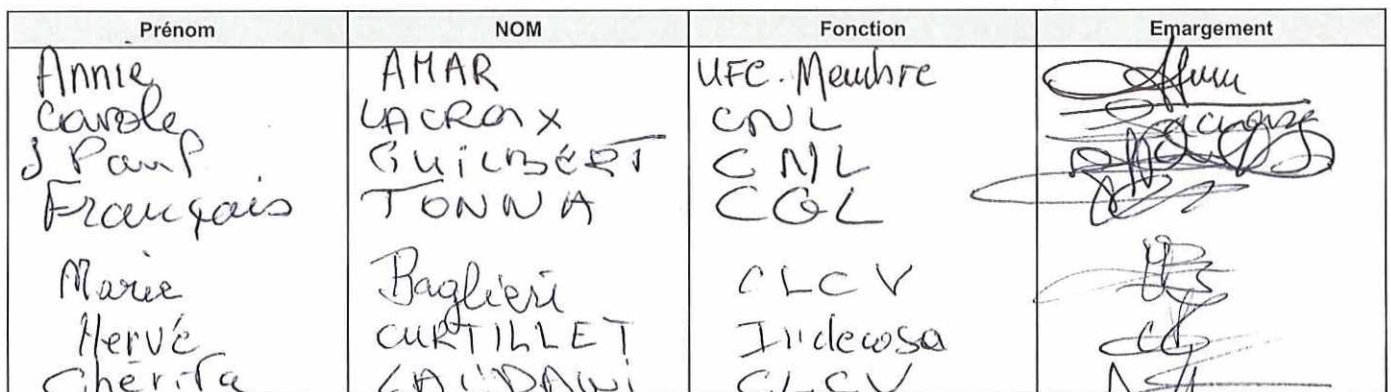 Prénom NOM Fonction Emargement
Annie AMAR UFC. Membre
Carole LACROIX CNL
J Paul GUILBERT CNL
Français TONNA CGL
Marie Baglieri CLCV
Hervé CURTILLET Indecosa
Chérifa CLCV